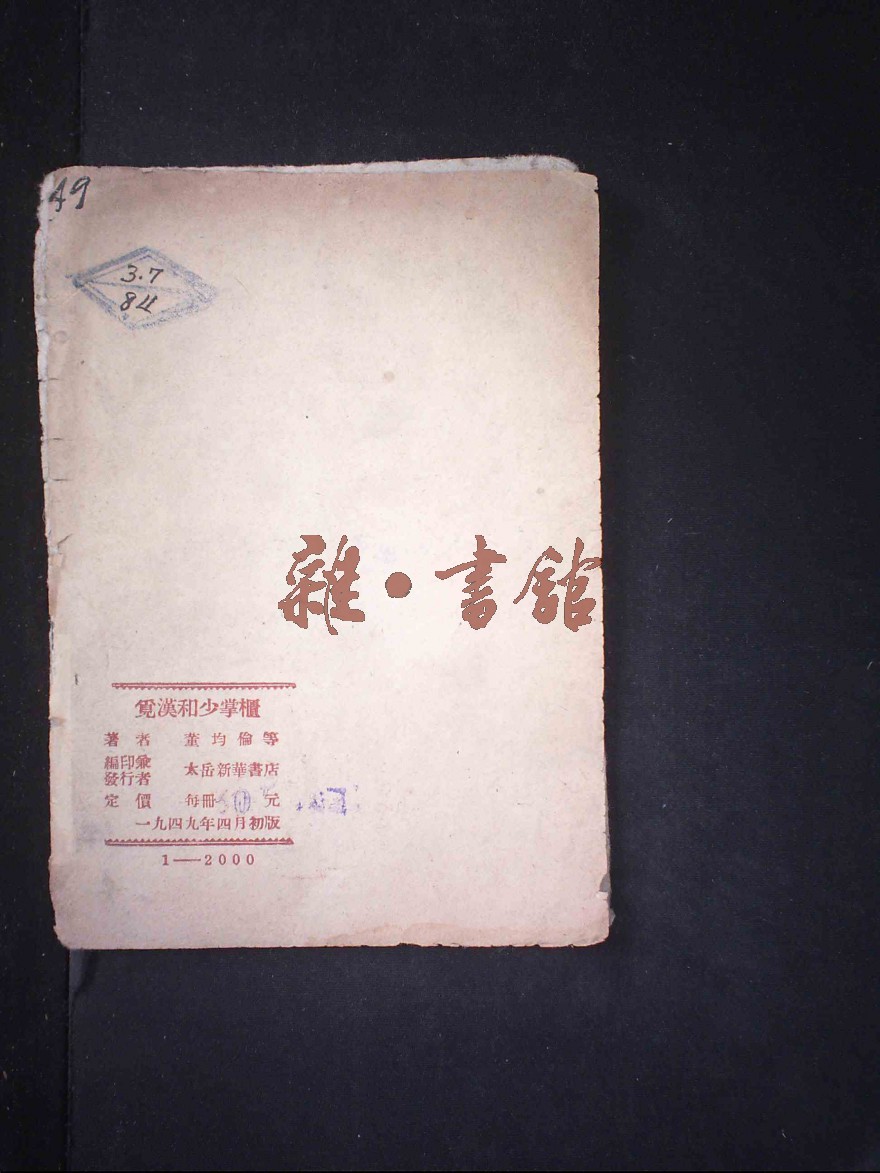 49
3.7
84
雜·書館
覓漢和少掌櫃
著者 董均倫等
編印兼
發行者 太岳新華書店
定價 每冊 元
一九四九年四月初版
1——2000